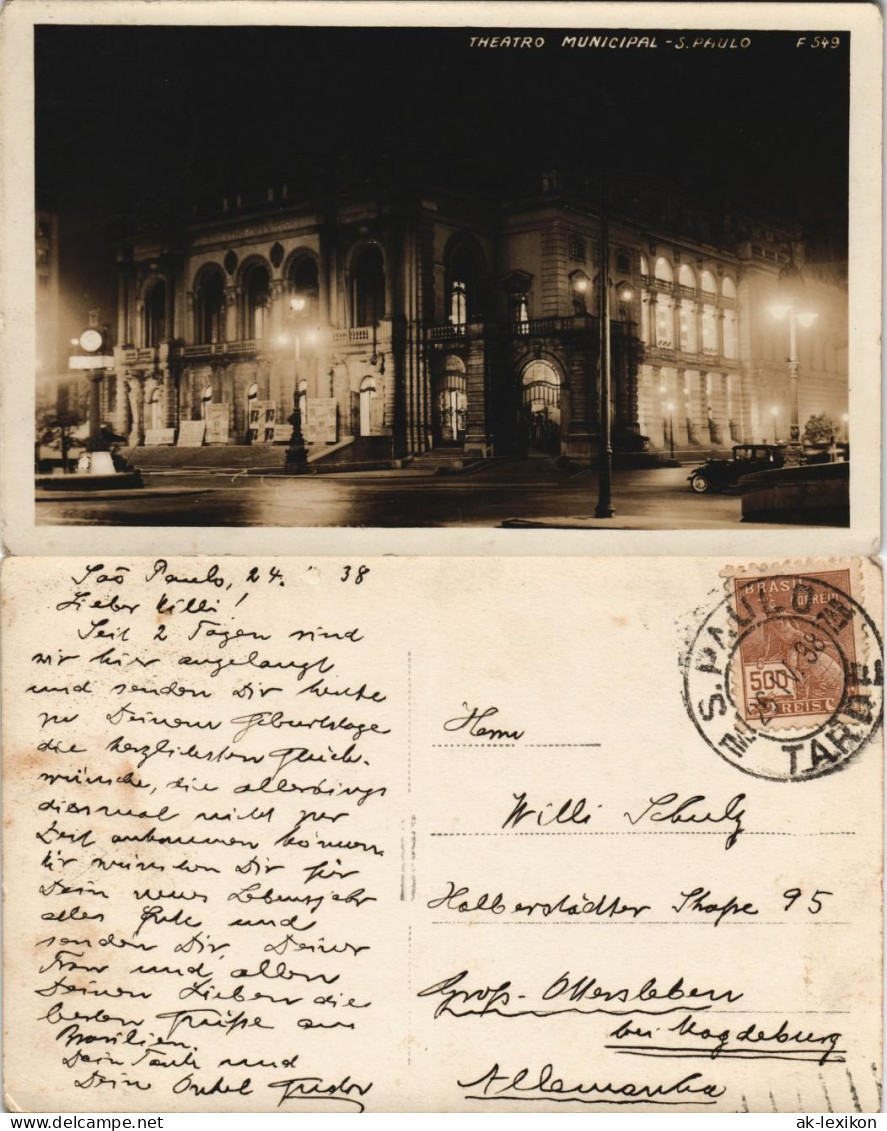 THEATRO MUNICIPAL - S. PAULO F 549
São Paulo, 24. 38
Lieber Willi!
Seit 2 Tagen sind
wir hier angelangt
und senden Dir heute
zu Deinem Geburtstage
die herzlichsten Glück-
wünsche, die allerdings
diesmal nicht zur
Zeit ankommen können
Wir wünschen Dir für
Dein neues Lebensjahr
alles Gute und
senden Dir, Deiner
Frau und allen
Deinen Lieben die
besten Grüße aus
Brasilien.
Dein und
Deine Onkel
BRASIL
CORREIO
500
REIS
S. PAULO
TARD
Herrn
Willi Schulz
Halberstädter Straße 95
Groß-Ottersleben
bei Magdeburg
Allemanha
www.ansichtskarten-lexikon.de ak-lexikon